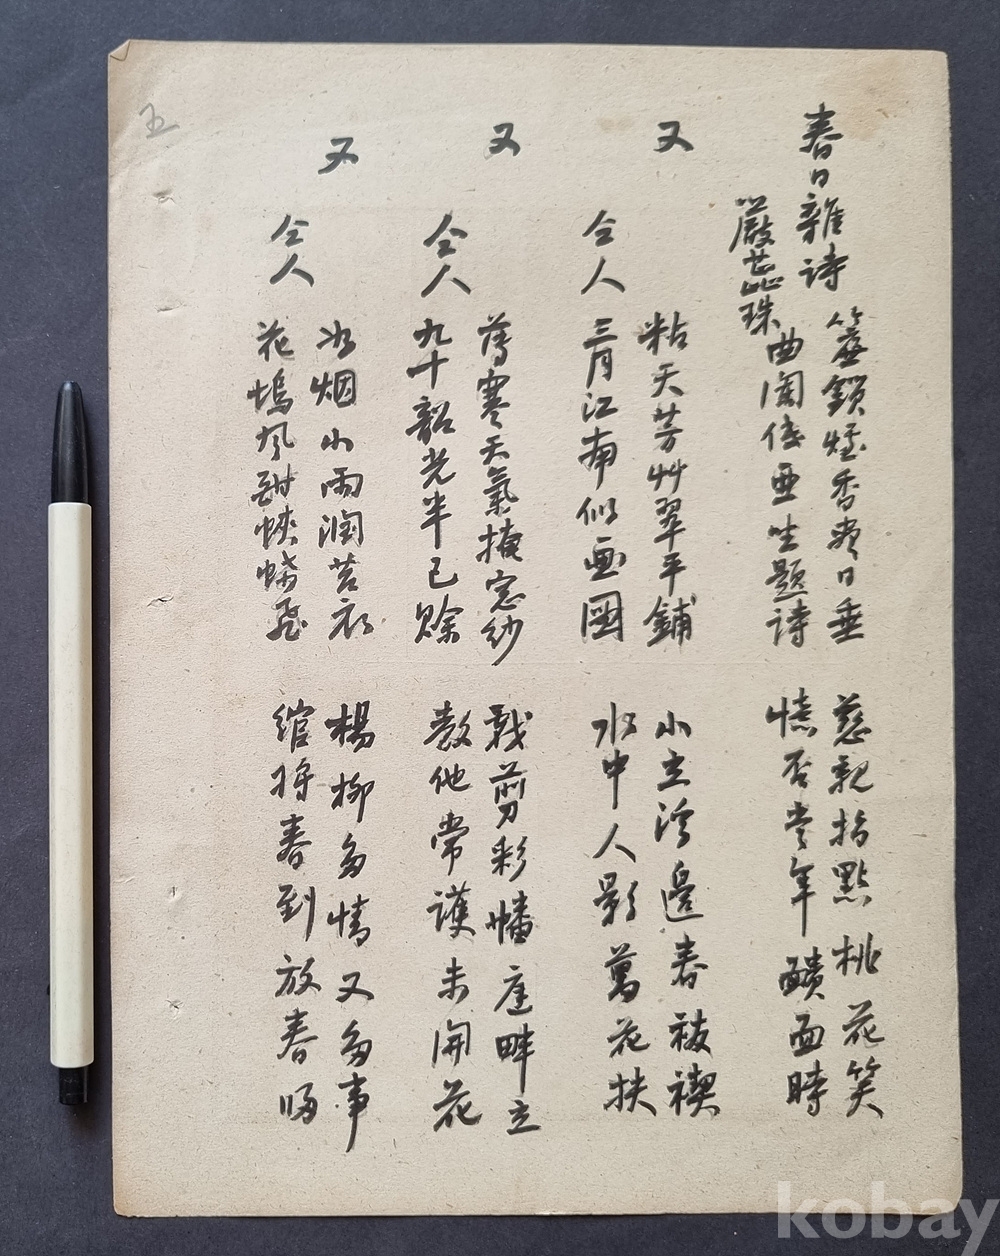 春日雜詩
嚴蕊珠
簾鎖爐香尽日垂
曲闌低亜坐題詩
慈親指點桃花笑
憶否当年靧面時
又
仝人
粘天芳艸翠平鋪
三月江南似画圖
小立溪邊春祓禊
水中人影萬花扶
又
仝人
薄寒天氣掩窓紗
九十韶光半已賒
戏剪彩幡庭畔立
教他常護未開花
又
仝人
如烟小雨潤苔衣
花塢風甜蛺蝶飛
楊柳多情又多事
綰将春到放春歸
五
kobay